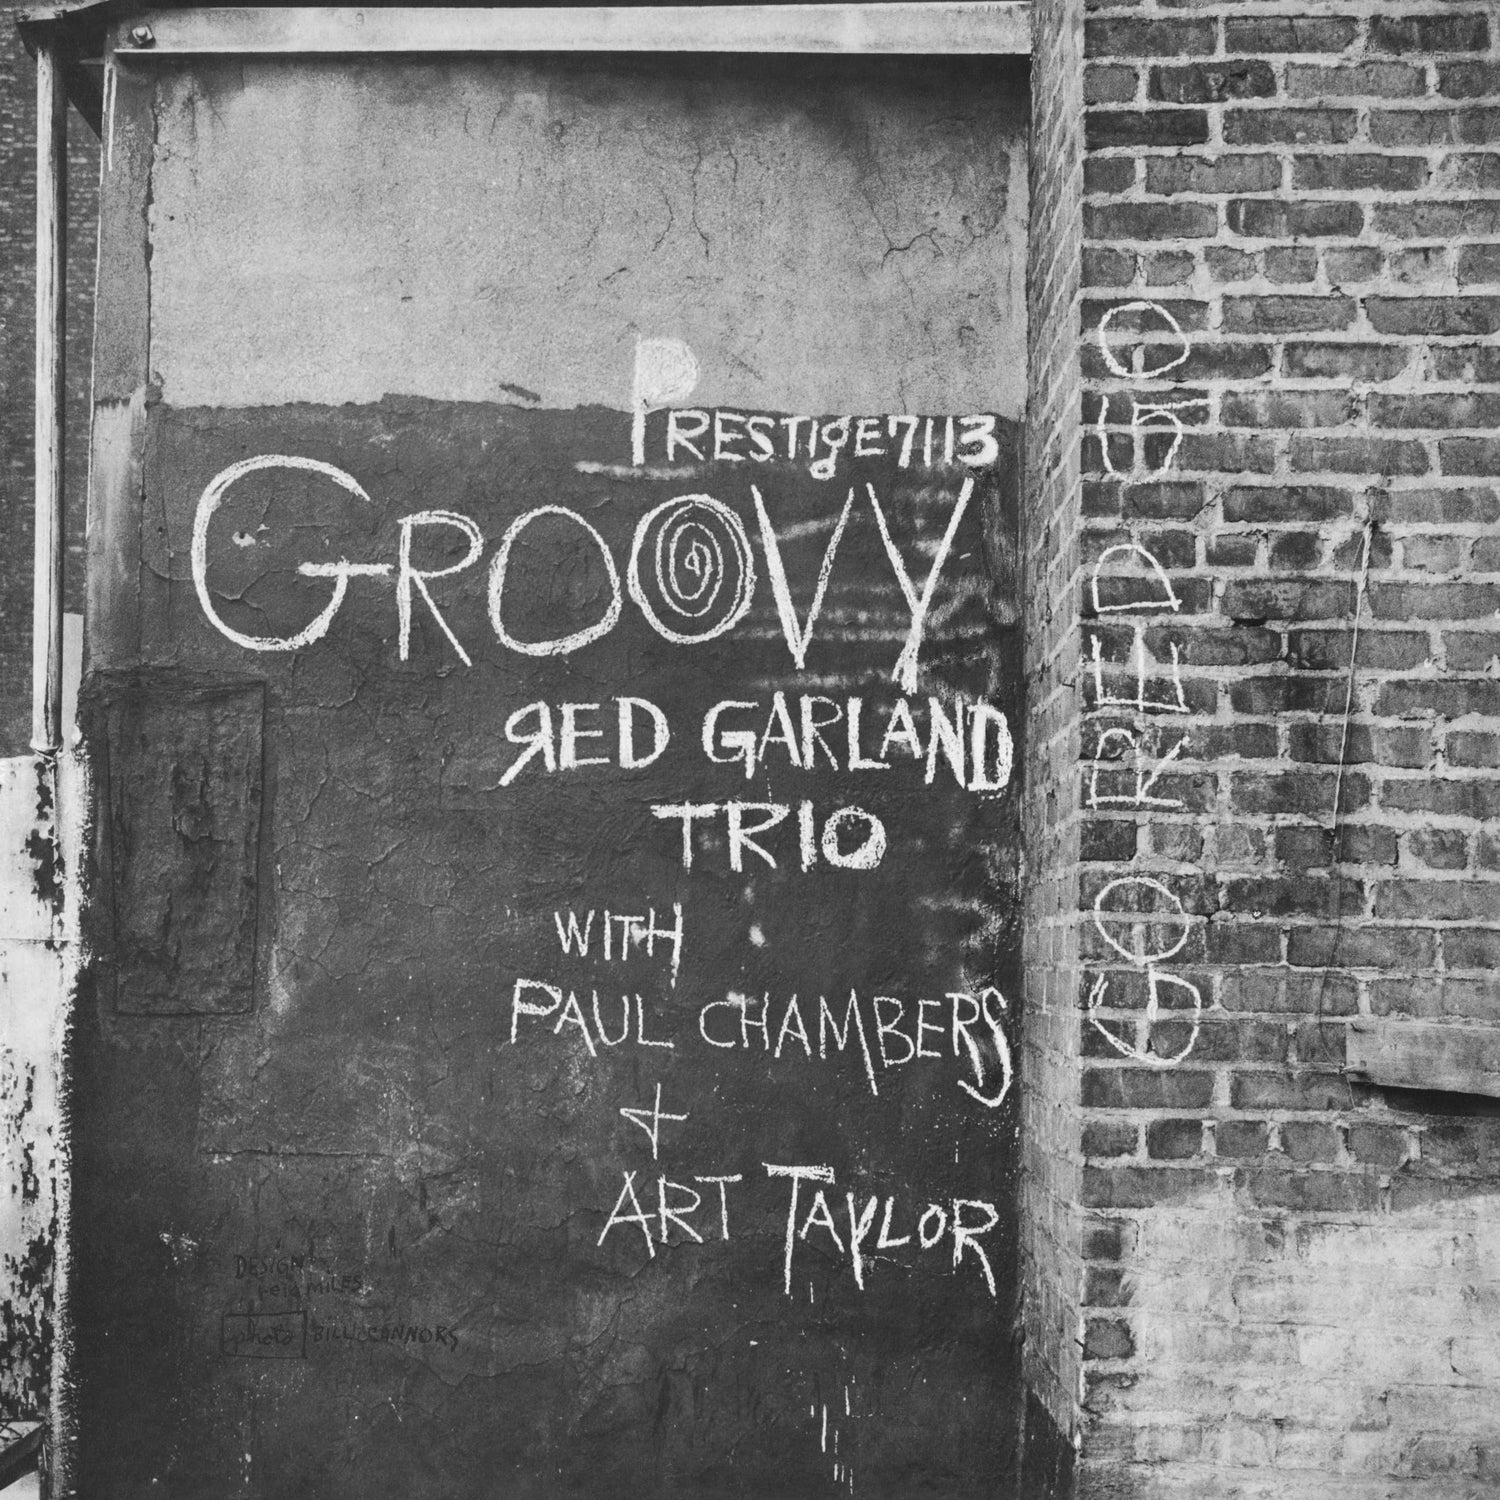 PRESTIGE 7113
GROOVY
RED GARLAND
TRIO
WITH
PAUL CHAMBERS
+
ART TAYLOR
DESIGN
reid MILES
photo BILL CONNORS
GO RED GO